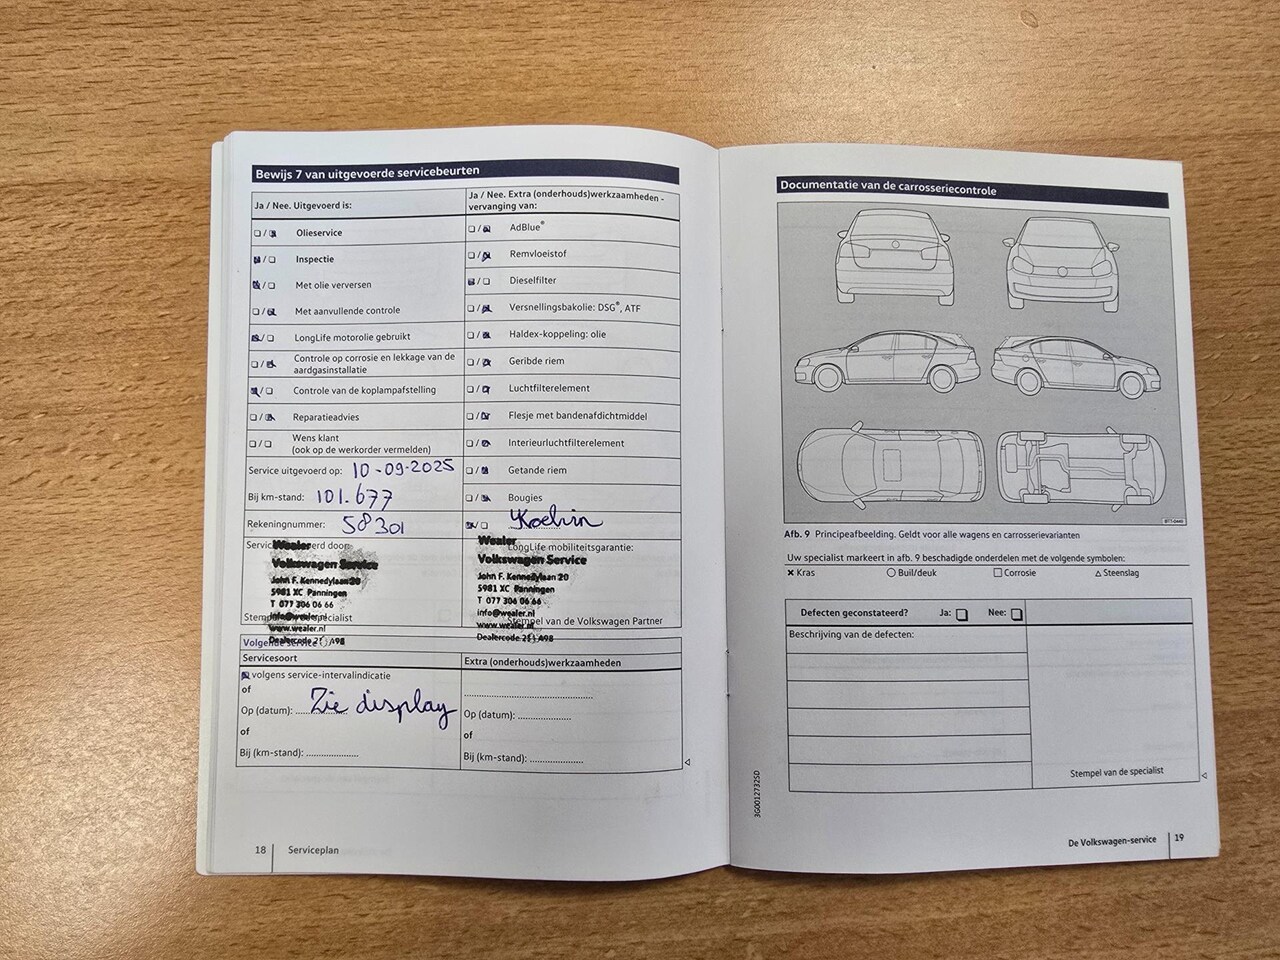 Bewijs 7 van uitgevoerde servicebeurten
Ja / Nee. Uitgevoerd is:
Olieservice
Inspectie
Met olie verversen
Met aanvullende controle
LongLife motorolie gebruikt
Controle op corrosie en lekkage van de
aardgasinstallatie
Controle van de koplampafstelling
Reparatieadvies
Wens klant
(ook op de werkorder vermelden)
Ja / Nee. Extra (onderhouds)werkzaamheden -
vervanging van:
AdBlue®
Remvloeistof
Dieselfilter
Versnellingsbakolie: DSG®, ATF
Haldex-koppeling: olie
Geribde riem
Luchtfilterelement
Flesje met bandenafdichtmiddel
Interieurluchtfilterelement
Getande riem
Bougies
Service uitgevoerd op: 10-09-2025
Bij km-stand: 101.677
Rekeningnummer: 58301
Koelvin
Wealer
Volkswagen Service
John F. Kennedylaan 20
5981 XC Panningen
T 077 306 06 66
info@wealer.nl
www.wealer.nl
LongLife mobiliteitsgarantie:
Wealer
Volkswagen Service
John F. Kennedylaan 20
5981 XC Panningen
T 077 306 06 66
info@wealer.nl
www.wealer.nl
Stempel van de Volkswagen Partner
Volgende service
Servicesoort
Extra (onderhouds)werkzaamheden
volgens service-intervalindicatie
of
Op (datum): Zie display
of
Bij (km-stand):
Op (datum):
of
Bij (km-stand):
18 Serviceplan
Documentatie van de carrosseriecontrole
Afb. 9 Principeafbeelding. Geldt voor alle wagens en carrosserievarianten
Uw specialist markeert in afb. 9 beschadigde onderdelen met de volgende symbolen:
Kras
Buil/deuk
Corrosie
Steenslag
Defecten geconstateerd? Ja: Nee:
Beschrijving van de defecten:
Stempel van de specialist
3G0012732SD
De Volkswagen-service 19